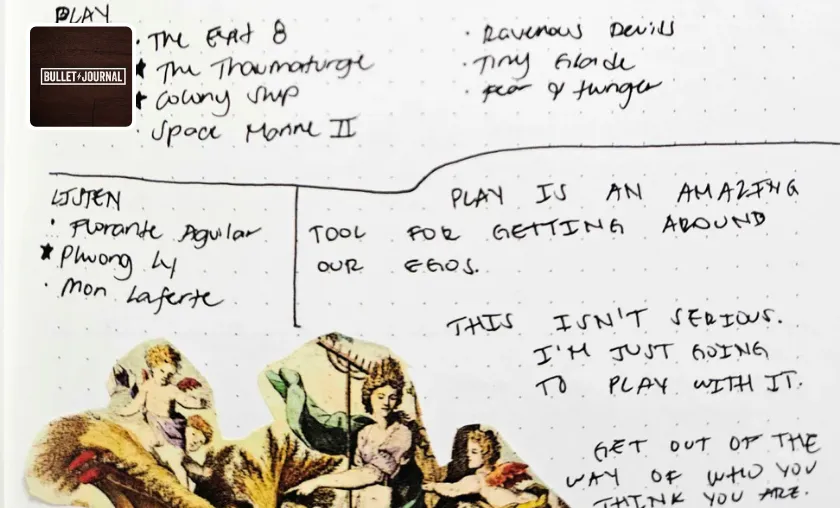 PLAY
BULLET JOURNAL
· The Exit 8
★ The Thaumaturge
★ Colony Ship
· Space Marine II
· Ravenous Devils
· Tiny Glade
· Fear & Hunger
LISTEN
· Florante Aguilar
★ Phuong Ly
· Mon Laferte
PLAY IS AN AMAZING
TOOL FOR GETTING AROUND
OUR EGOS.
THIS ISN'T SERIOUS.
I'M JUST GOING
TO PLAY WITH IT.
GET OUT OF THE
WAY OF WHO YOU
THINK YOU ARE.